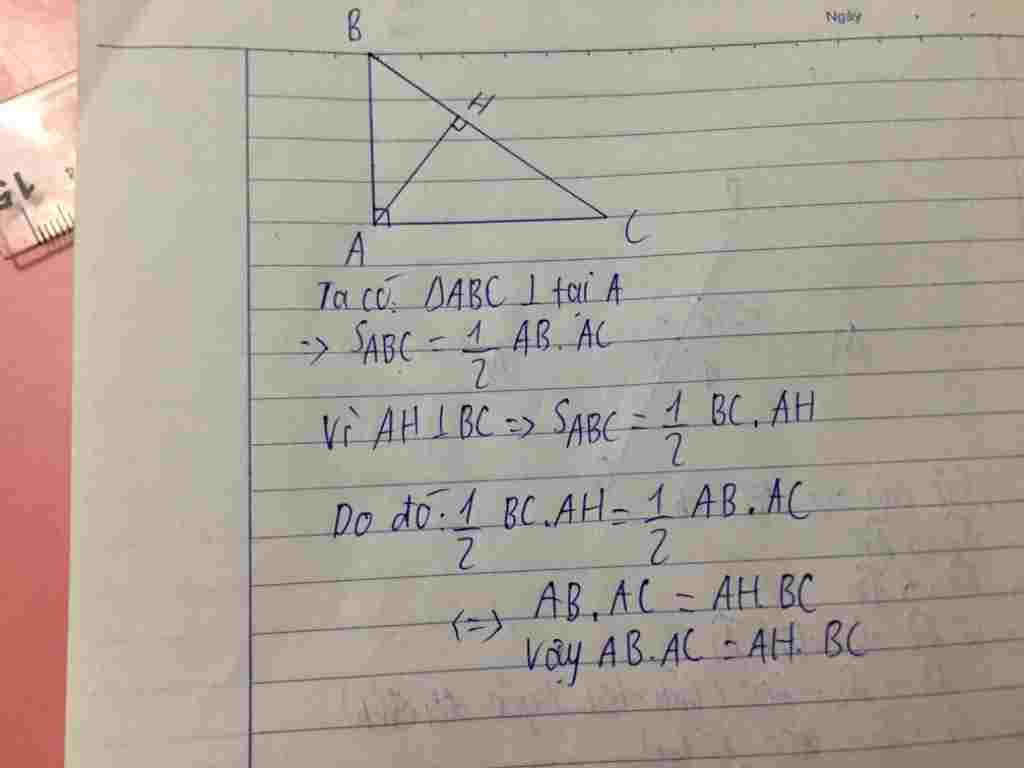 Ngày
B
H
A
C
15
Ta có: ΔABC ⊥ tại A
=> S_ABC = 1/2 AB. AC
Vì AH ⊥ BC => S_ABC = 1/2 BC. AH
Do đó: 1/2 BC.AH = 1/2 AB. AC
<=> AB. AC = AH.BC
Vậy AB.AC = AH. BC